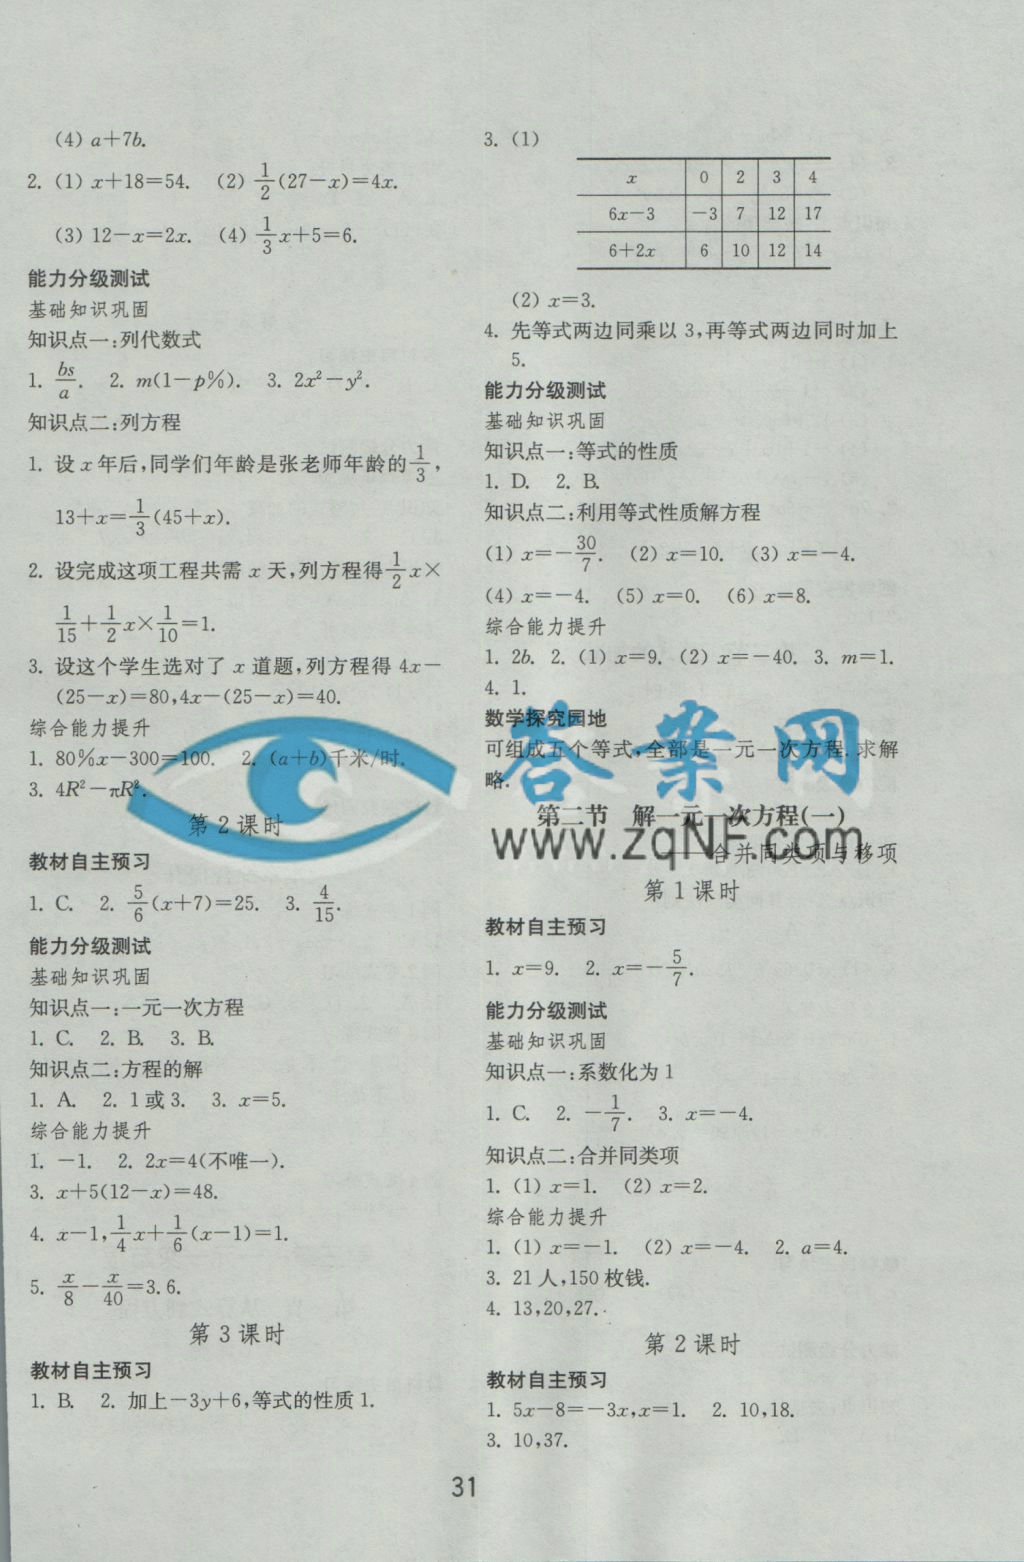 (4) a+7b.
2. (1) x+18=54. (2) 1/2(27-x)=4x.
(3) 12-x=2x. (4) 1/3x+5=6.
能力分级测试
基础知识巩固
知识点一:列代数式
1. bs/a. 2. m(1-p%). 3. 2x²-y².
知识点二:列方程
1. 设 x 年后,同学们年龄是张老师年龄的1/3,
13+x=1/3(45+x).
2. 设完成这项工程共需 x 天,列方程得1/2x×
1/15+1/2x×1/10=1.
3. 设这个学生选对了 x 道题,列方程得 4x-
(25-x)=80,4x-(25-x)=40.
综合能力提升
1. 80%x-300=100. 2. (a+b)千米/时.
3. 4R²-πR².
第 2 课时
教材自主预习
1. C. 2. 5/6(x+7)=25. 3. 4/15.
能力分级测试
基础知识巩固
知识点一:一元一次方程
1. C. 2. B. 3. B.
知识点二:方程的解
1. A. 2. 1或3. 3. x=5.
综合能力提升
1. -1. 2. 2x=4(不唯一).
3. x+5(12-x)=48.
4. x-1,1/4x+1/6(x-1)=1.
5. x/8-x/40=3.6.
第 3 课时
教材自主预习
1. B. 2. 加上-3y+6,等式的性质1.
3. (1)
x 0 2 3 4
6x-3 -3 7 12 17
6+2x 6 10 12 14
(2) x=3.
4. 先等式两边同乘以 3,再等式两边同时加上
5.
能力分级测试
基础知识巩固
知识点一:等式的性质
1. D. 2. B.
知识点二:利用等式性质解方程
(1) x=-30/7. (2) x=10. (3) x=-4.
(4) x=-4. (5) x=0. (6) x=8.
综合能力提升
1. 2b. 2. (1) x=9. (2) x=-40. 3. m=1.
4. 1.
数学探究园地
可组成五个等式,全部是一元一次方程.求解
略.
答案网
www.zqNF.com
第二节 解一元一次方程(一)
——合并同类项与移项
第 1 课时
教材自主预习
1. x=9. 2. x=-5/7.
能力分级测试
基础知识巩固
知识点一:系数化为 1
1. C. 2. -1/7. 3. x=-4.
知识点二:合并同类项
1. (1) x=1. (2) x=2.
综合能力提升
1. (1) x=-1. (2) x=-4. 2. a=4.
3. 21人,150枚钱.
4. 13,20,27.
第 2 课时
教材自主预习
1. 5x-8=-3x,x=1. 2. 10,18.
3. 10,37.
31